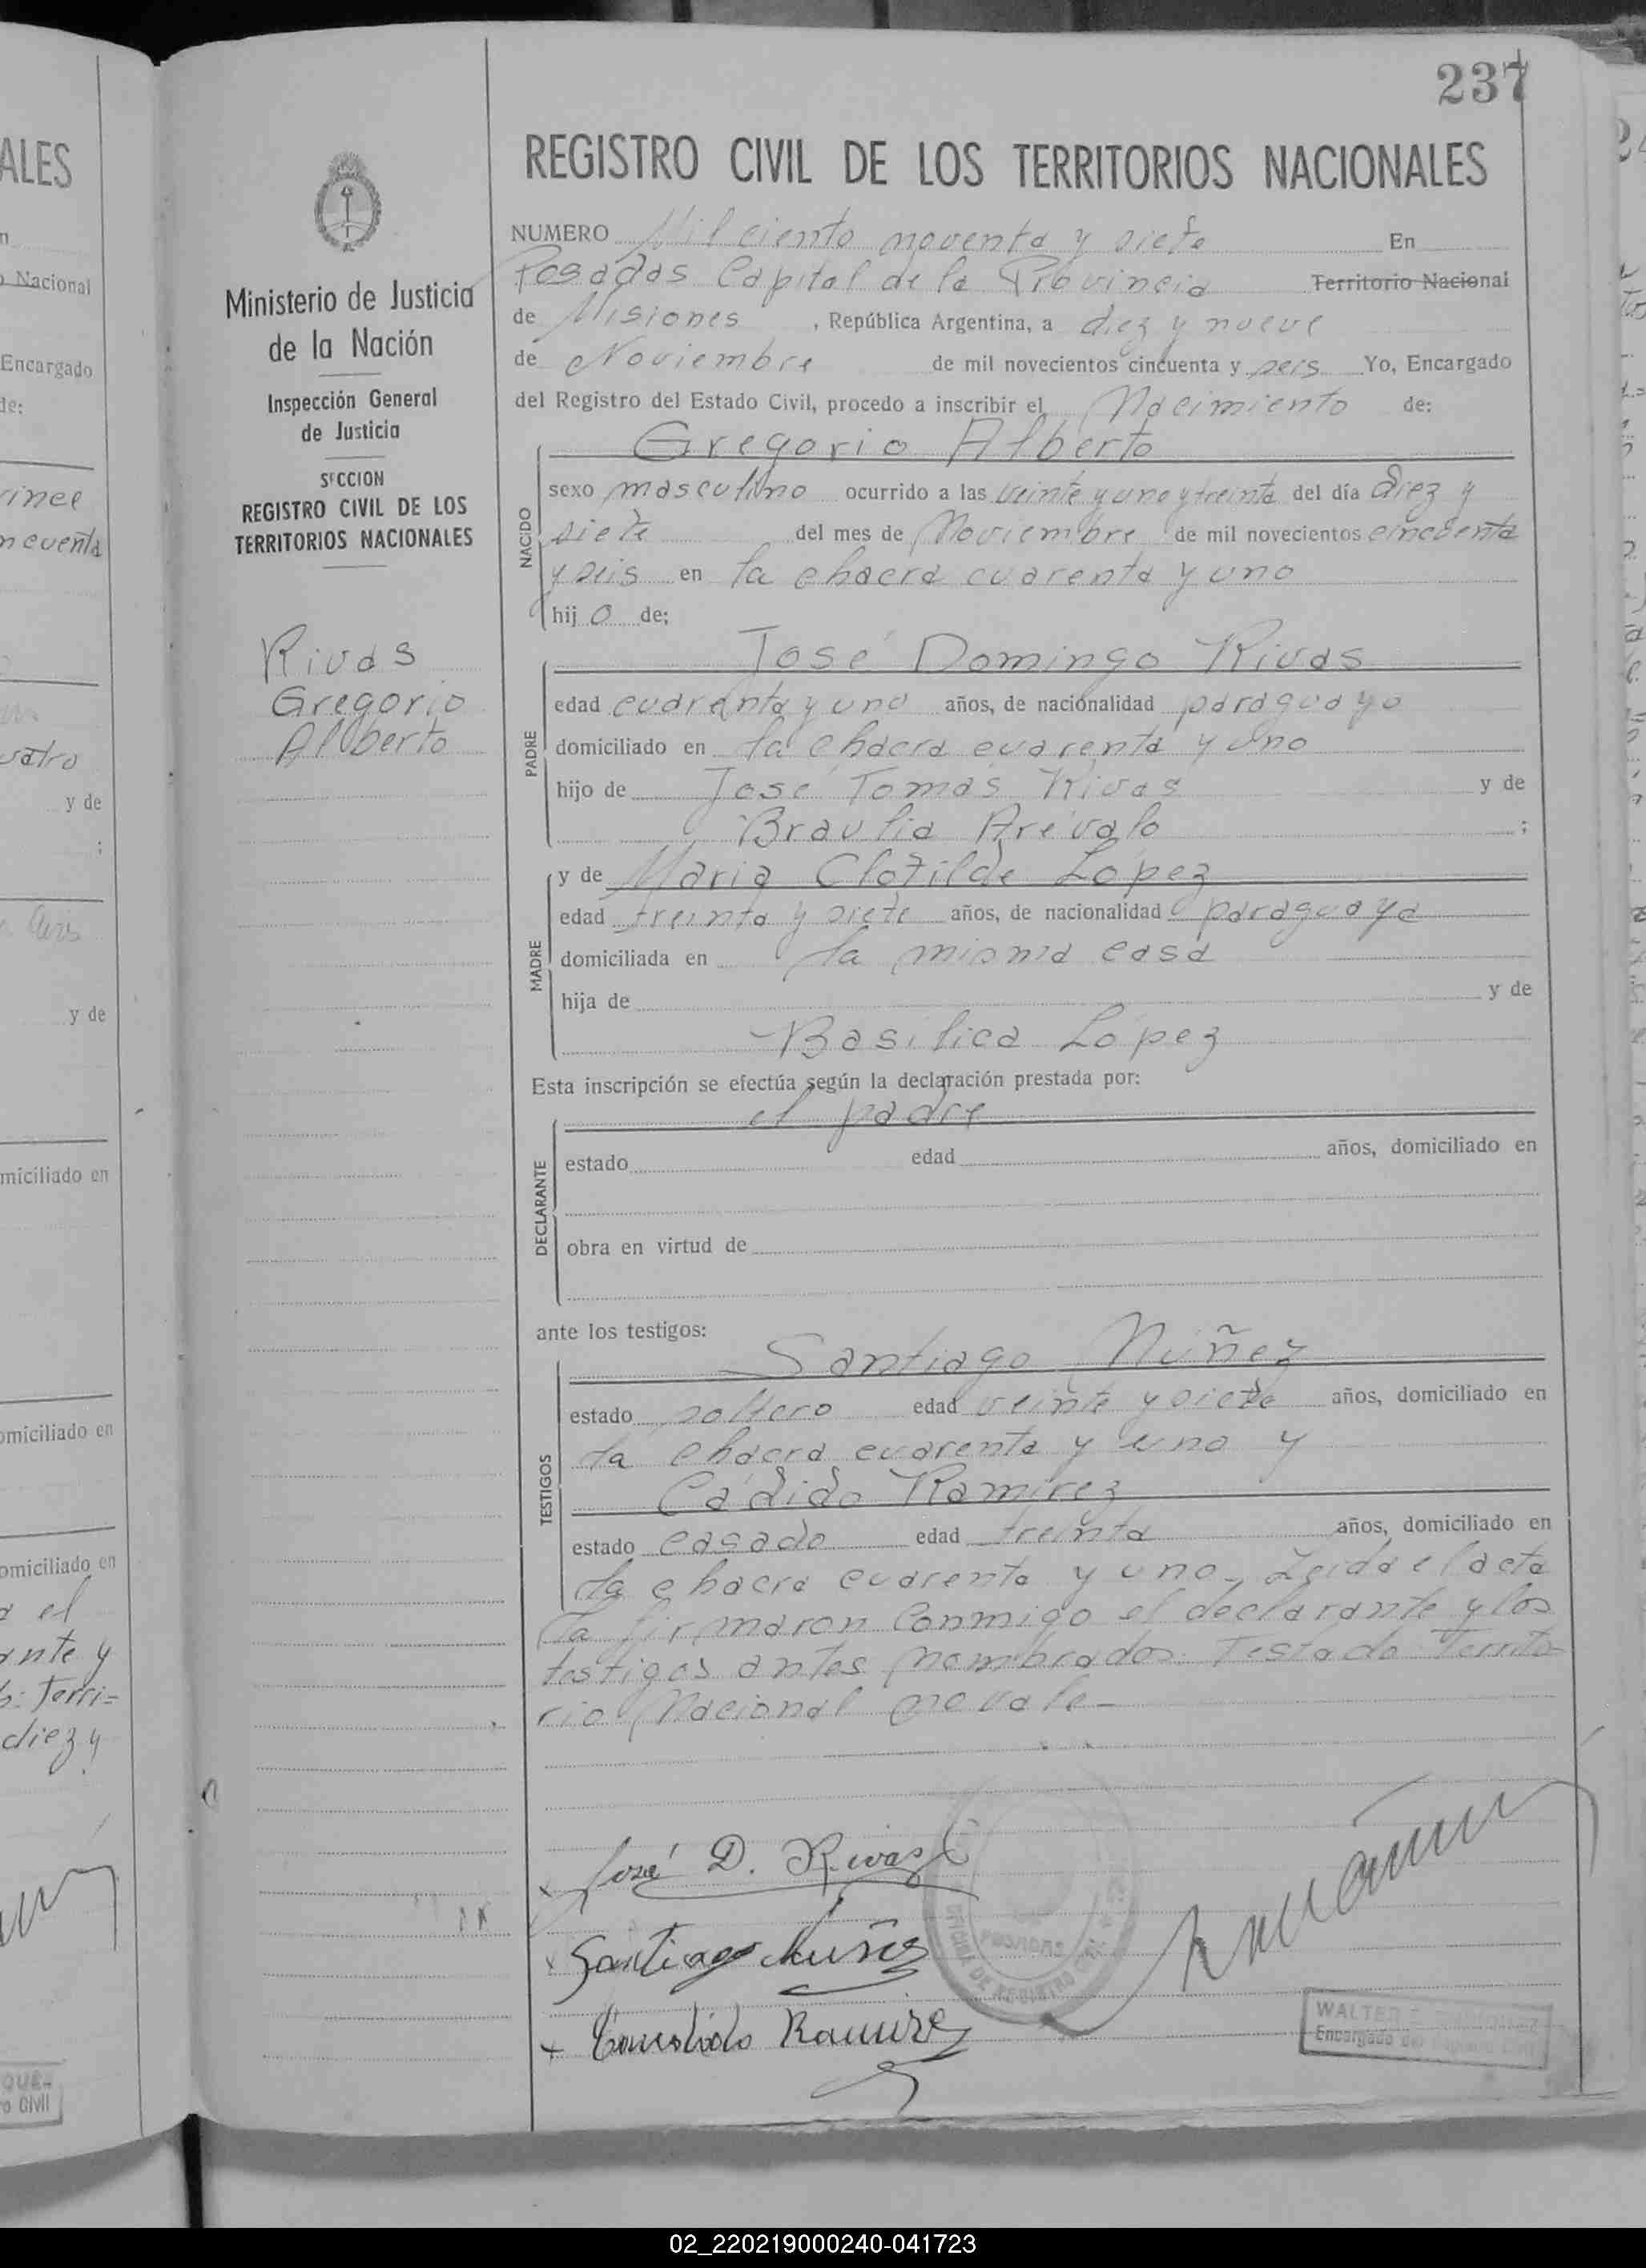 237
REGISTRO CIVIL DE LOS TERRITORIOS NACIONALES
Ministerio de Justicia
de la Nación
Inspección General
de Justicia
SECCION
REGISTRO CIVIL DE LOS
TERRITORIOS NACIONALES
Rivas
Gregorio
Alberto
NUMERO Mil ciento noventa y siete En
Posadas Capital de la Provincia Territorio Nacional
de Misiones , República Argentina, a diez y nueve
de Noviembre de mil novecientos cincuenta y seis Yo, Encargado
del Registro del Estado Civil, procedo a inscribir el Nacimiento de:
NACIDO
Gregorio Alberto
sexo masculino ocurrido a las veinte y uno y treinta del día diez y
siete del mes de Noviembre de mil novecientos cincuenta
y seis en la chacra cuarenta y uno
hij o de;
PADRE
José Domingo Rivas
edad cuarenta y uno años, de nacionalidad paraguayo
domiciliado en la chacra cuarenta y uno
hijo de José Tomás Rivas y de
Braulia Arévalo ;
MADRE
y de Maria Clotilde López
edad treinta y siete años, de nacionalidad paraguaya
domiciliada en la misma casa
hija de y de
Basilica López
Esta inscripción se efectúa según la declaración prestada por:
DECLARANTE
el padre
estado edad años, domiciliado en
obra en virtud de
ante los testigos:
TESTIGOS
Santiago Núñez
estado soltero edad veinte y siete años, domiciliado en
la chacra cuarenta y uno y
Cádido Ramírez
estado casado edad treinta años, domiciliado en
la chacra cuarenta y uno. Leida el acta
la firmaron conmigo el declarante y los
testigos antes nombrados. Testado Territo
rio Nacional no vale-
José D. Rivas
Santiago Nuñez
Ramirez
OFICINA DE REGISTRO CIVIL
POSADAS
WALTER
Encargado del Registro Civil
ALES
Nacional
Encargado
de:
y de
;
y de
miciliado en
omiciliado en
omiciliado en
el
ante y
Terri=
diez y
02_220219000240-041723